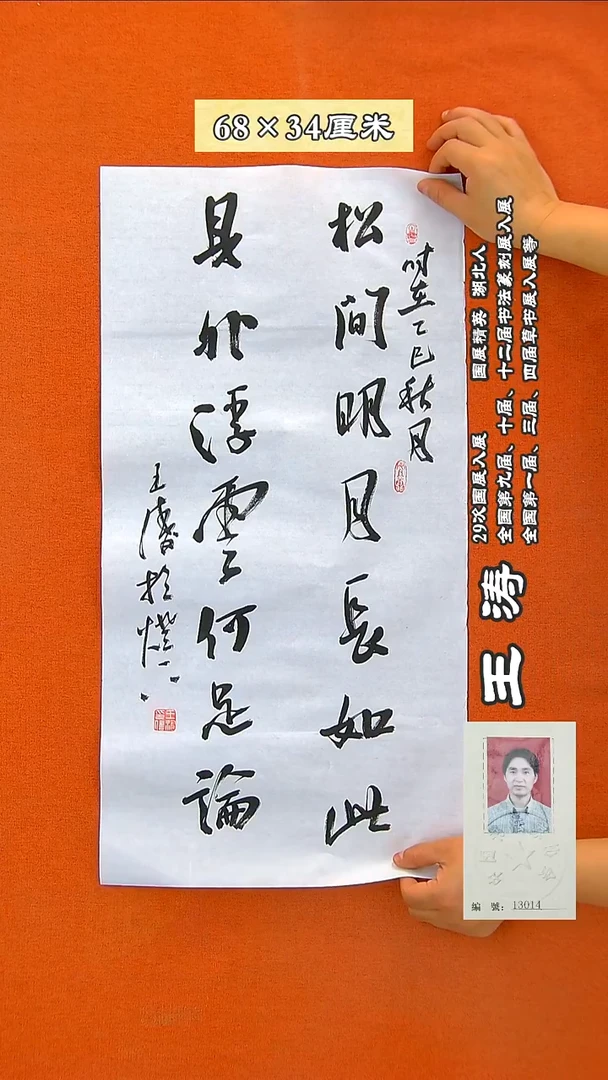 68×34厘米
时在乙巳秋月
松间明月長如此
身外浮雲何足論
王濤於燈下
王涛
29次国展入展 国展精英 湖北人
全国第九届、十届、十二届书法篆刻展入展
全国第一届、三届、四届草书展入展等
編 號：13014